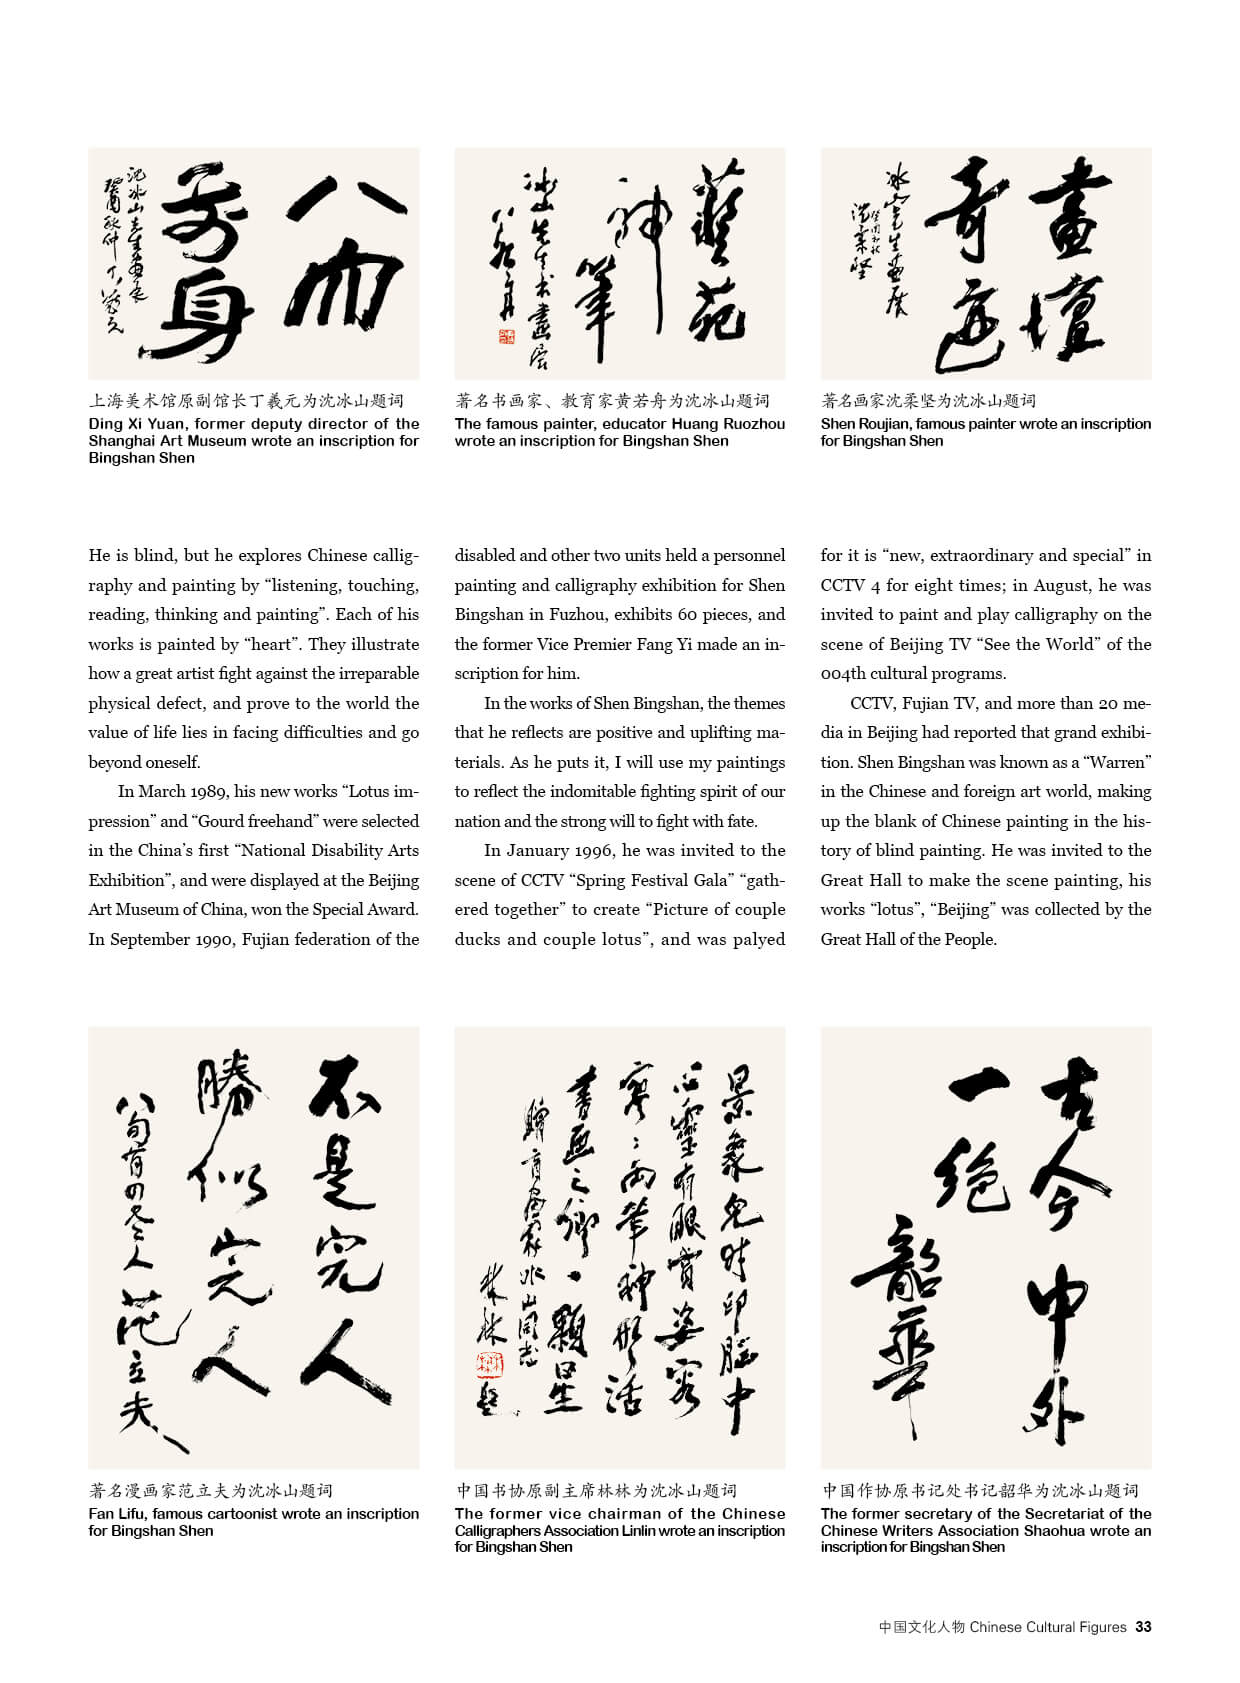 沈冰山先生畫展
癸酉秋仲丁羲元
上海美术馆原副馆长丁羲元为沈冰山题词
Ding Xi Yuan, former deputy director of the
Shanghai Art Museum wrote an inscription for
Bingshan Shen
藝苑
神筆
冰山先生书畫展
著名书画家、教育家黄若舟为沈冰山题词
The famous painter, educator Huang Ruozhou
wrote an inscription for Bingshan Shen
畫壇
奇迹
冰山先生画展
沈柔坚
著名画家沈柔坚为沈冰山题词
Shen Roujian, famous painter wrote an inscription
for Bingshan Shen
He is blind, but he explores Chinese callig-
raphy and painting by “listening, touching,
reading, thinking and painting”. Each of his
works is painted by “heart”. They illustrate
how a great artist fight against the irreparable
physical defect, and prove to the world the
value of life lies in facing difficulties and go
beyond oneself.
In March 1989, his new works “Lotus im-
pression” and “Gourd freehand” were selected
in the China’s first “National Disability Arts
Exhibition”, and were displayed at the Beijing
Art Museum of China, won the Special Award.
In September 1990, Fujian federation of the
disabled and other two units held a personnel
painting and calligraphy exhibition for Shen
Bingshan in Fuzhou, exhibits 60 pieces, and
the former Vice Premier Fang Yi made an in-
scription for him.
In the works of Shen Bingshan, the themes
that he reflects are positive and uplifting ma-
terials. As he puts it, I will use my paintings
to reflect the indomitable fighting spirit of our
nation and the strong will to fight with fate.
In January 1996, he was invited to the
scene of CCTV “Spring Festival Gala” “gath-
ered together” to create “Picture of couple
ducks and couple lotus”, and was palyed
for it is “new, extraordinary and special” in
CCTV 4 for eight times; in August, he was
invited to paint and play calligraphy on the
scene of Beijing TV “See the World” of the
004th cultural programs.
CCTV, Fujian TV, and more than 20 me-
dia in Beijing had reported that grand exhibi-
tion. Shen Bingshan was known as a “Warren”
in the Chinese and foreign art world, making
up the blank of Chinese painting in the his-
tory of blind painting. He was invited to the
Great Hall to make the scene painting, his
works “lotus”, “Beijing” was collected by the
Great Hall of the People.
不是完人
勝似完人
八旬有四老人
范立夫
著名漫画家范立夫为沈冰山题词
Fan Lifu, famous cartoonist wrote an inscription
for Bingshan Shen
景象兒时印脑中
心靈有眼賞姿容
寥寥両筆神形活
書画之鄉一顆星
赠盲画家冰山同志
林林題
中国书协原副主席林林为沈冰山题词
The former vice chairman of the Chinese
Calligraphers Association Linlin wrote an inscription
for Bingshan Shen
古今中外
一绝
韶華
中国作协原书记处书记韶华为沈冰山题词
The former secretary of the Secretariat of the
Chinese Writers Association Shaohua wrote an
inscription for Bingshan Shen
中国文化人物 Chinese Cultural Figures 33